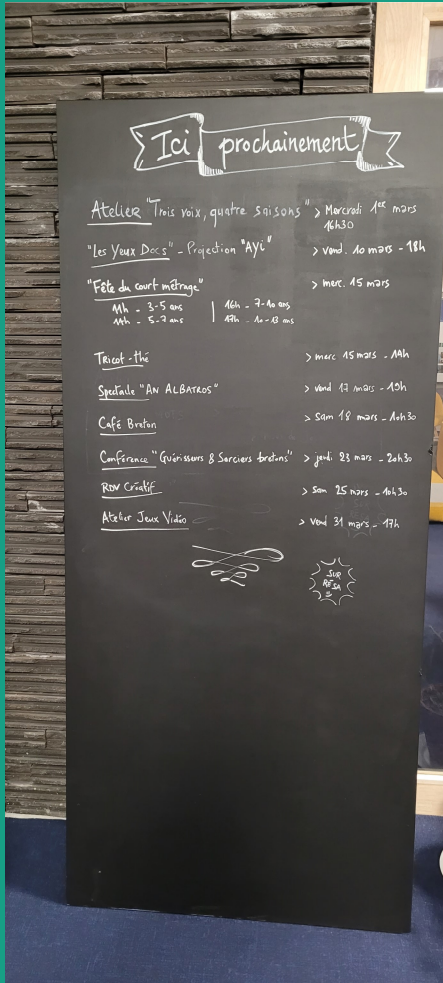 Ici prochainement
Atelier "Trois voix, quatre saisons" > Mercredi 1er mars
16h30
"Les Yeux Docs" - Projection "Ayi" > vend. 10 mars - 18h
"Fête du court métrage" > merc. 15 mars
11h - 3-5 ans | 16h - 7-10 ans
14h - 5-7 ans | 17h - 10-13 ans
Tricot-thé > merc 15 mars - 14h
Spectacle "AN ALBATROS" > vend 17 mars - 19h
Café Breton > Sam 18 mars - 10h30
Conférence "Guérisseurs & Sorciers bretons" > jeudi 23 mars - 20h30
RDV Créatif > Sam 25 mars - 10h30
Atelier Jeux Vidéo > Vend 31 mars - 17h
SUR
RÉSA